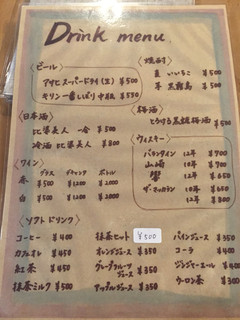 Drink menu
〈ビール〉
アサヒスーパードライ(生) ¥500
キリン一番しぼり 中瓶 ¥550
〈焼酎〉
麦 いいちこ ¥500
芋 黒霧島 ¥500
〈日本酒〉
比婆美人 一合 ¥500
冷酒 比婆美人 ¥800
〈梅酒〉
とろける黒糖梅酒 ¥500
〈ワイン〉
グラス デキャンタ ボトル
赤 ¥500 1200 2000
白 ¥500 1200 2000
〈ウィスキー〉
バランタイン 12年 ¥700
山崎 10年 ¥700
響 12年 ¥
ザ・マッカラン 10年 ¥
12年 ¥800
〈ソフトドリンク〉
コーヒー ¥400
カフェオレ ¥450
紅茶 ¥450
抹茶ミルク ¥500
抹茶ヒット ¥500
オレンジジュース ¥350
グレープフルーツジュース ¥350
アップルジュース ¥350
パインジュース ¥350
コーラ ¥400
ジンジャーエール ¥400
ウーロン茶 ¥300